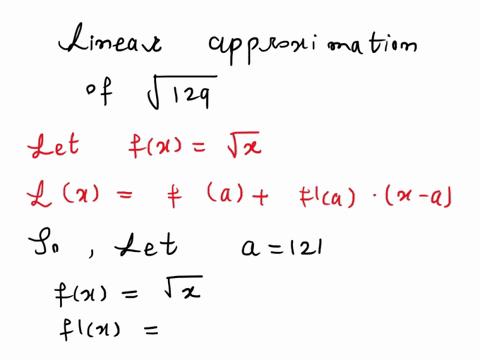 Linear approximation
of √129
Let f(x) = √x
L(x) = f(a) + f'(a) · (x-a)
So, Let a = 121
f(x) = √x
f'(x) =